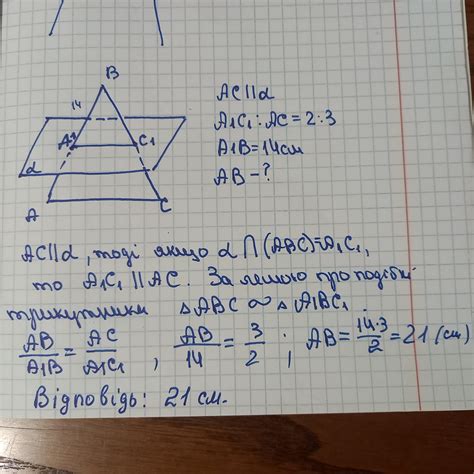 B
14
A1
C1
α
A
C
AC||α
A1C1 : AC = 2:3
A1B = 14см
AB - ?
AC||α, тоді якщо α ∩ (ABC) = A1C1,
то A1C1 || AC. За лемою про подібні
трикутники △ABC ∾ △A1BC1.
AB/A1B = AC/A1C1 , AB/14 = 3/2 ; AB = 14·3/2 = 21 (см)
Відповідь: 21 см.